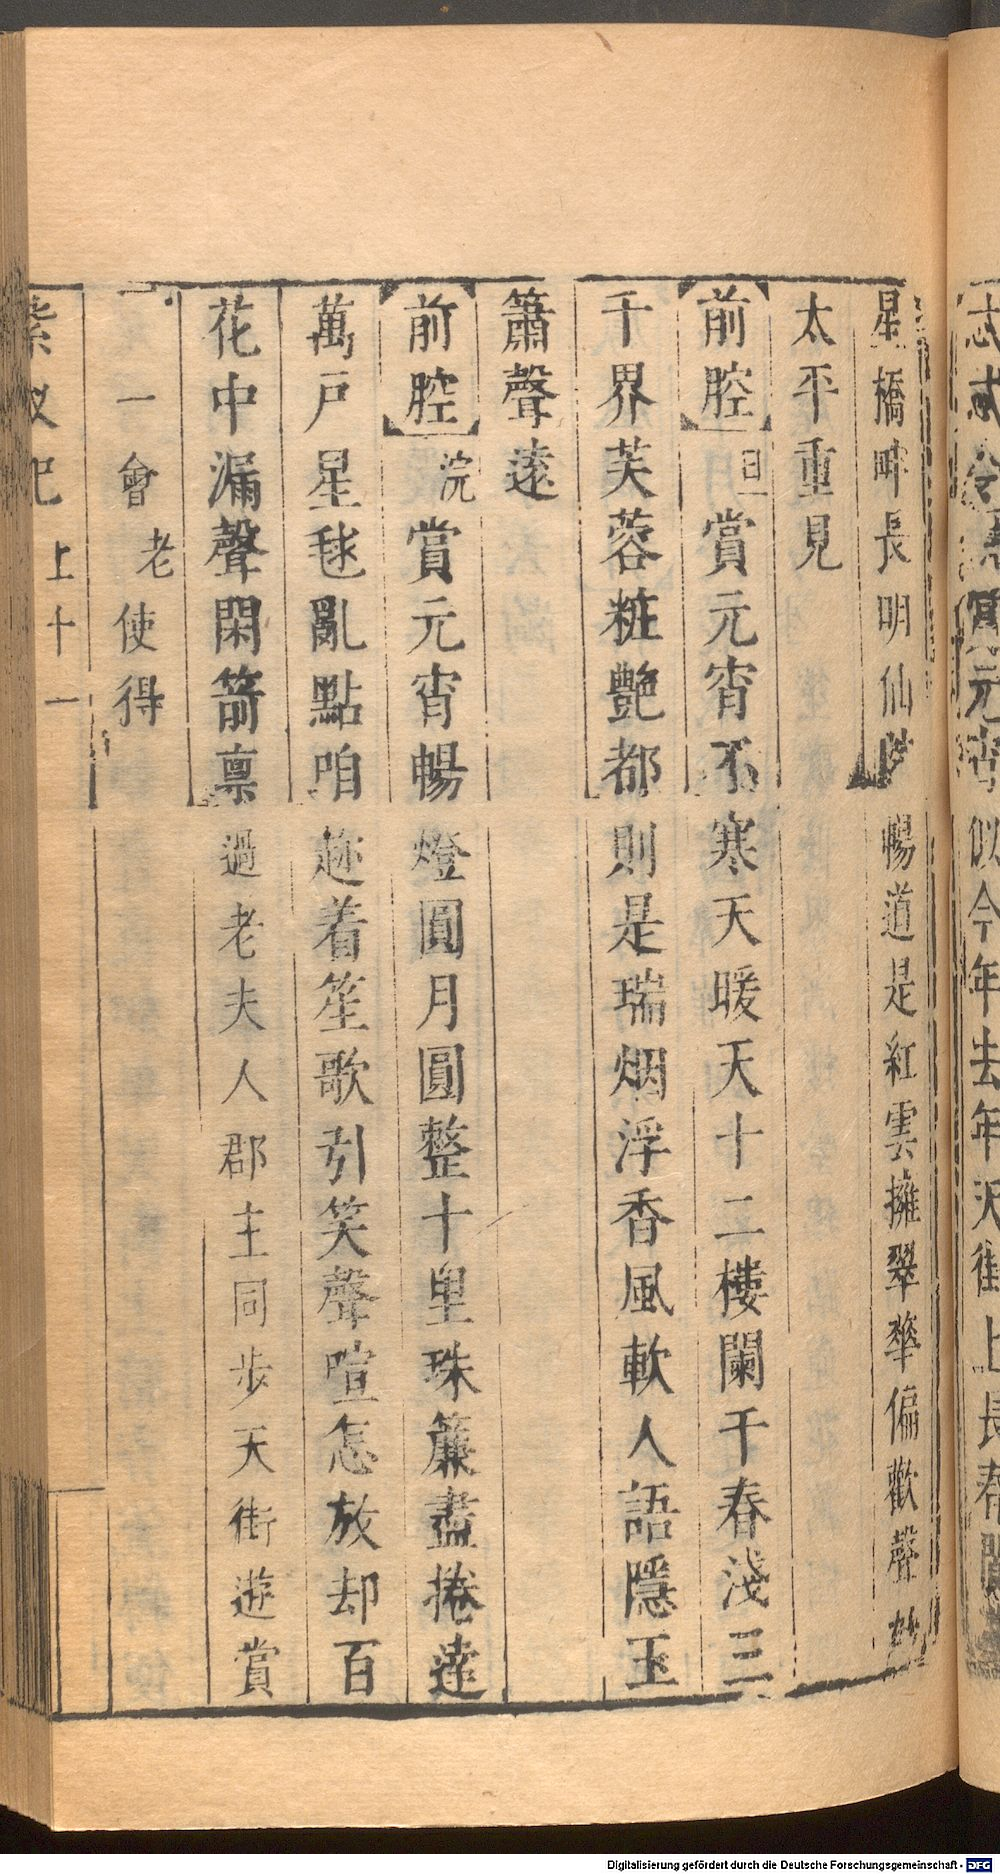 賞元宵似今年去年天街上長春
星橋畔長明仙暢道是紅雲擁翠華偏歡聲
太平重見
前腔旦賞元宵不寒天暖天十二樓闌干春淺三
千界芙蓉粧艷都則是瑞烟浮香風軟人語隱玉
簫聲遠
前腔浣賞元宵暢燈圓月圓整十里珠簾盡捲達
萬戶星毬亂點咱趂着笙歌引笑聲喧怎放却百
花中漏聲閑箭稟過老夫人郡主同步天街遊賞
一會老使得
紫釵記 上 十一
Digitalisierung gefördert durch die Deutsche Forschungsgemeinschaft - DFG